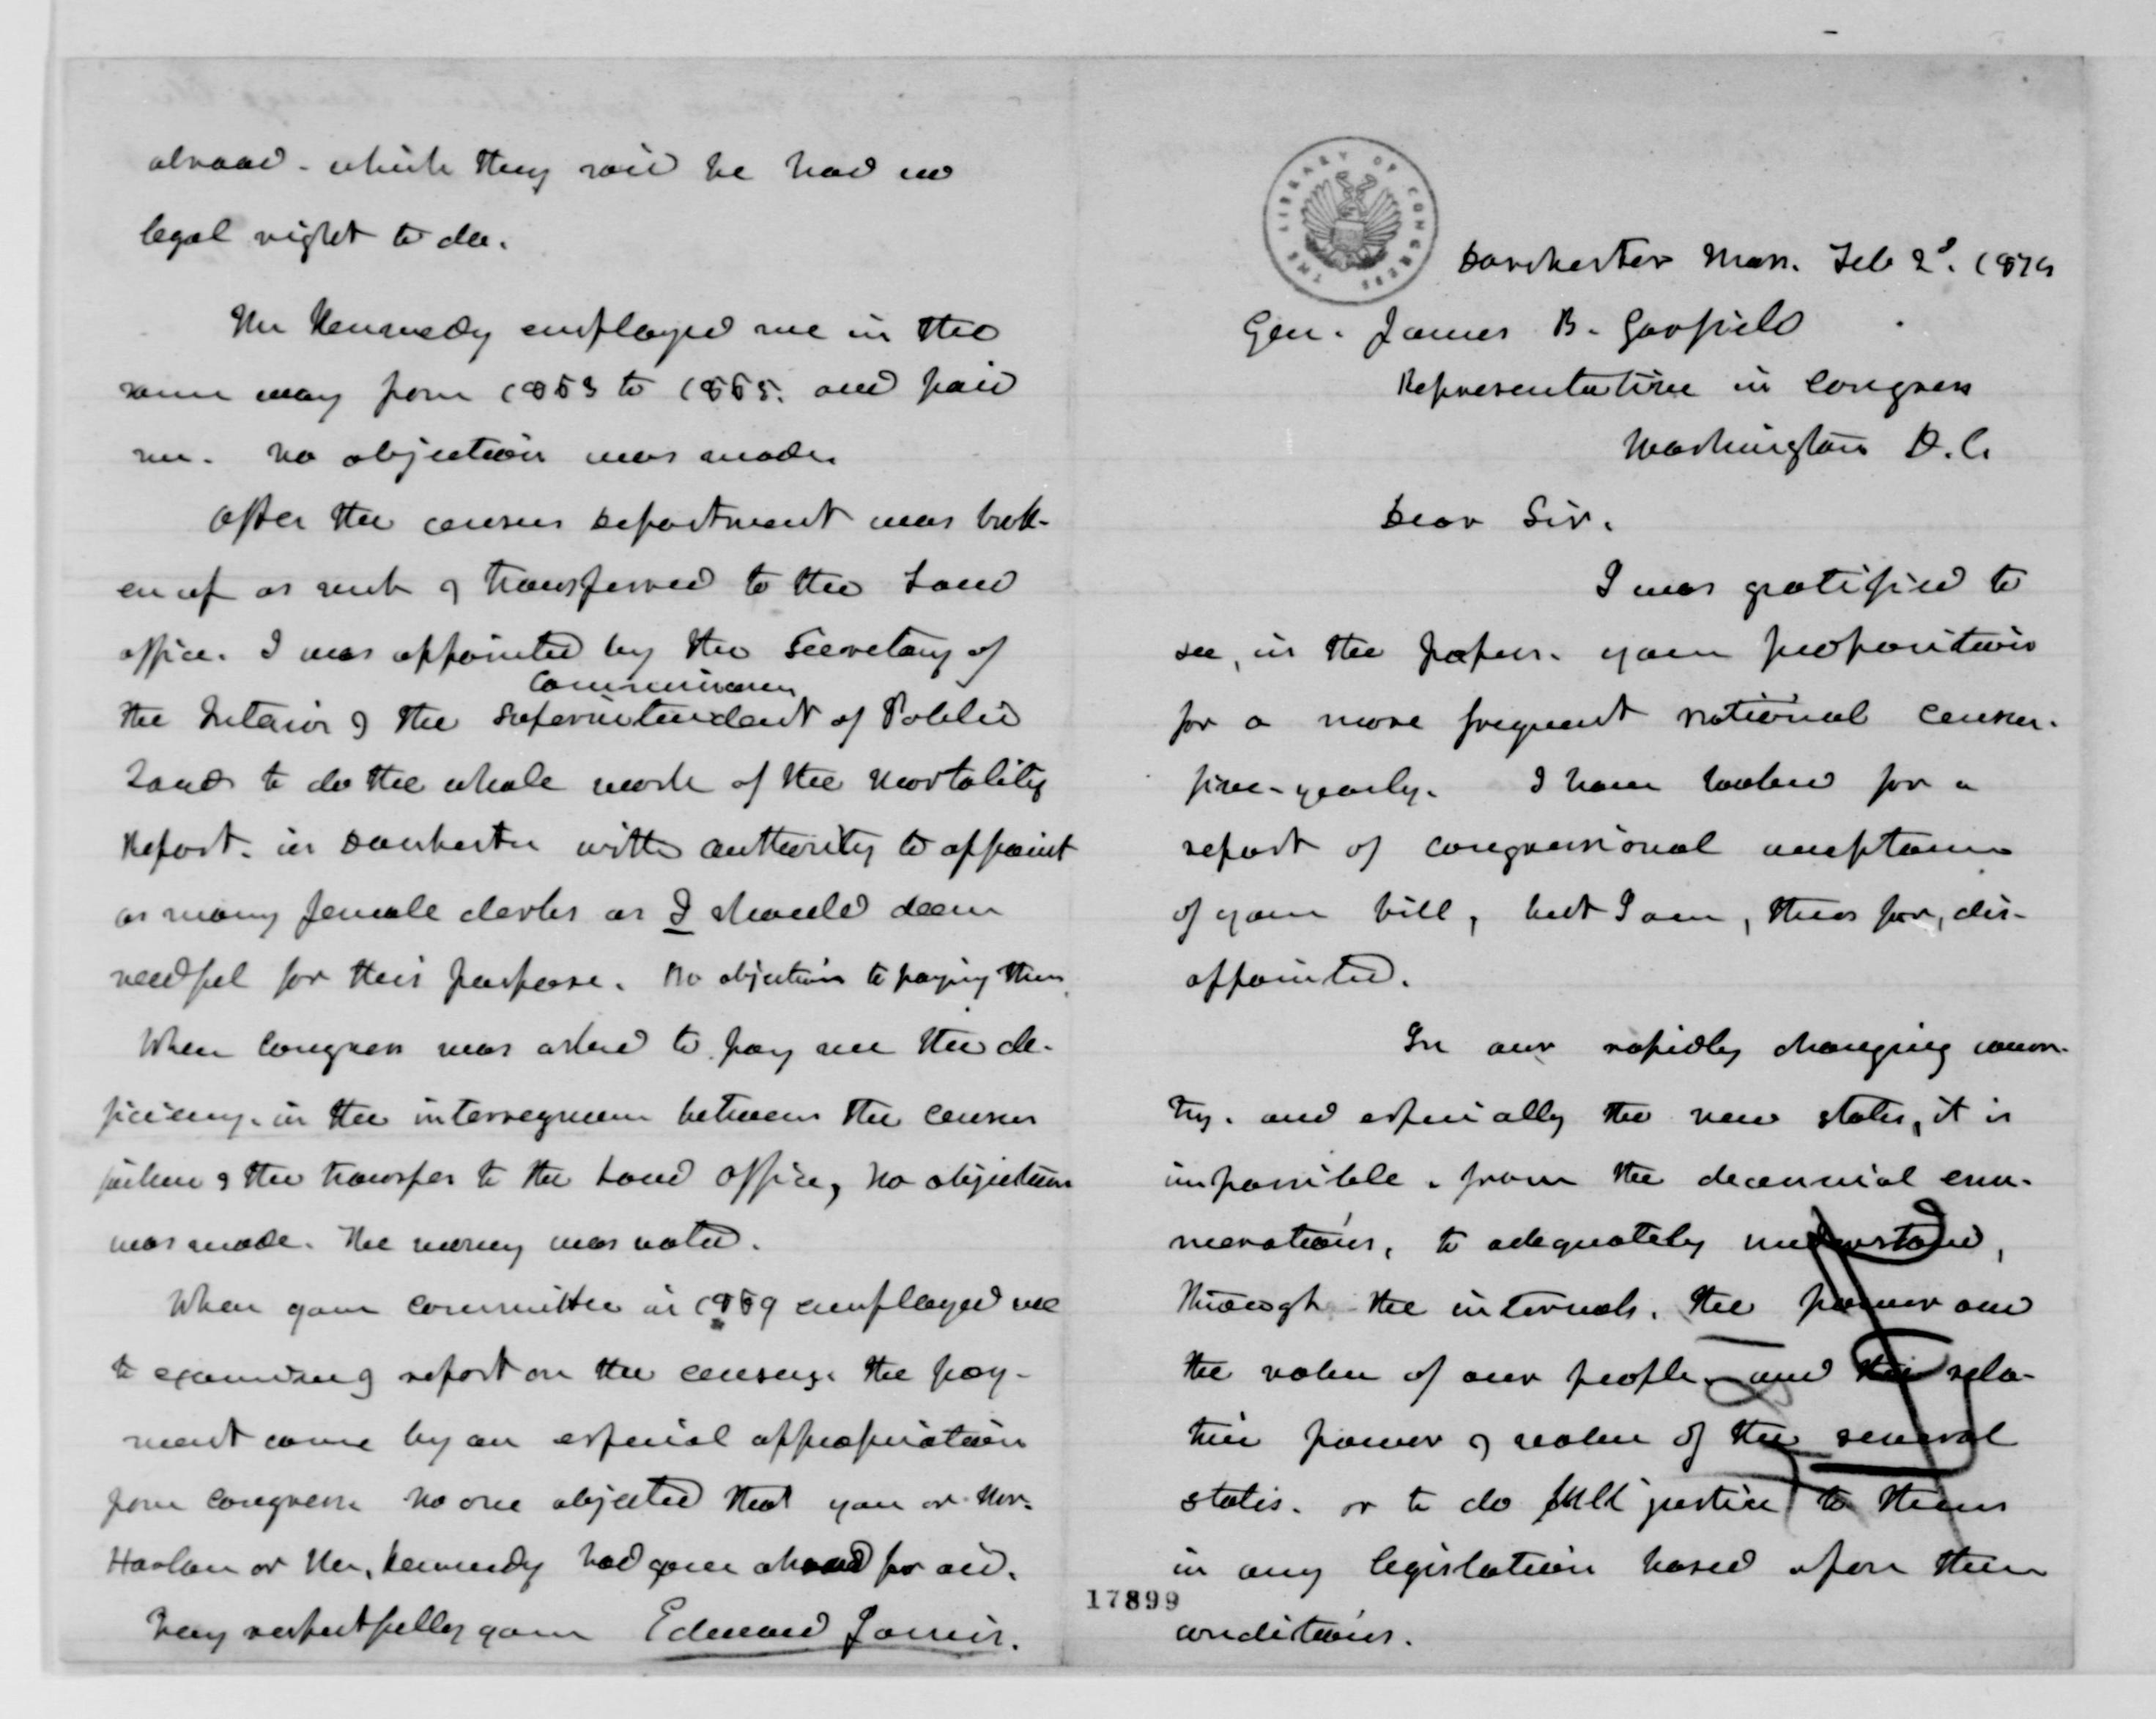 abroad - which they said he had no
legal right to do.
Mr Kennedy employed me in the
same way from 1863 to 1865. and paid
me. No objection was made.
After the census department was brok-
en up as such & transferred to the Land
office. I was appointed by the Secretary of
the Interior & the Superintendent of Public
Commissioner
Lands to do the whole work of the Mortality
Report. in Dorchester with authority to appoint
as many female clerks as I should deem
needful for this purpose. No objection to paying them.
When Congress was asked to pay me the de-
ficiency. in the interregnum between the census
& the transfer to the Land Office, no objection
was made. The money was voted.
When your committee in 1869 employed me
to examine & report on the census. the pay-
ment came by an especial appropriation
from Congress no one objected that you or Mr.
Harlan or Mr. Kennedy had gone abroad for aid.
Very respectfully yours Edward Jarvis.
THE LIBRARY OF CONGRESS
Dorchester Mass. Feb 2d. 187
Gen. James B. Garfield
Representative in Congress
Washington D.C.
Dear Sir.
I was gratified to
see, in the papers. your proposition
for a more frequent national census.
five-yearly. I have looked for a
report of congressional acceptance
of your bill, but I am, thus far, dis-
appointed.
In our rapidly changing coun-
try. and especially the new states, it is
impossible. from the decennial enu-
merations, to adequately understand,
through the intervals. the power and
the value of our people. and the rela-
tive power & value of the several
states. or to do full justice to them
in any legislation based upon their
conditions.
17899